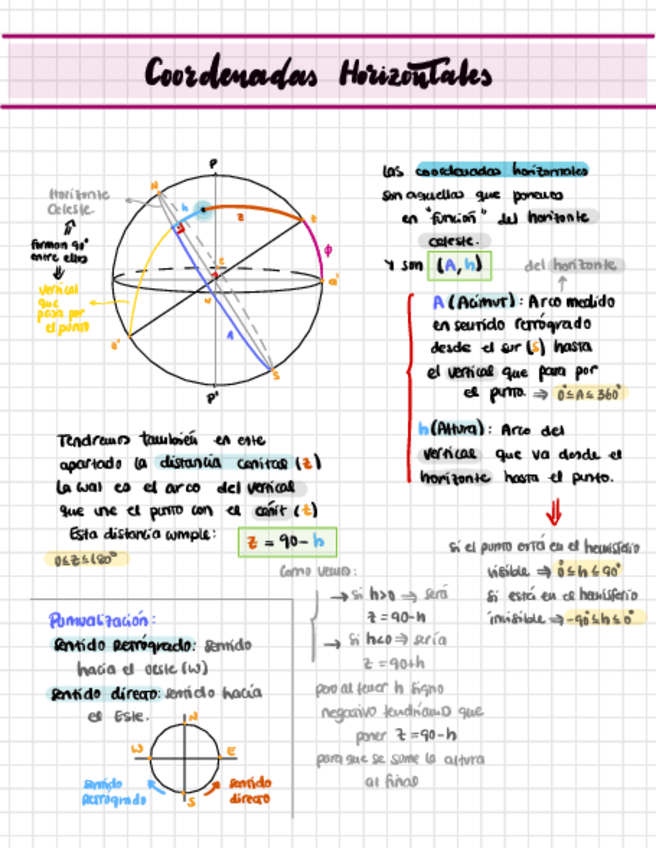 Coordenadas Horizontales
P
N
Horizonte
Celeste
forman 90°
entre ellos
vertical
que
pasa por
el punto
h
z
z
φ
Q'
E
W
A
z'
S
P'
Las coordenadas horizontales
son aquellas que ponemos
en "función" del horizonte
celeste.
Y son (A, h)
del horizonte
A (Acimut): Arco medido
en sentido retrógrado
desde el sur (S) hasta
el vertical que pasa por
el punto. ⇒ 0°≤A≤360°
h (Altura): Arco del
vertical que va desde el
horizonte hasta el punto.
Si el punto está en el hemisferio
visible ⇒ 0°≤h≤90°
Si está en el hemisferio
invisible ⇒ -90°≤h≤0°
Tendremos también en este
apartado la distancia cenital (z)
La cual es el arco del vertical
que une el punto con el cénit (z)
Esta distancia cumple:
z = 90-h
0≤z≤180°
Como vemos:
→ si h>0 ⇒ será
z = 90-h
→ si h<0 ⇒ sería
z = 90+h
pero al tener h signo
negativo tendríamos que
poner z = 90-h
para que se sume la altura
al final
Puntualización:
Sentido Retrógrado: Sentido
hacia el oeste (W)
Sentido directo: sentido hacia
el Este.
N
W
E
S
sentido
retrógrado
sentido
directo